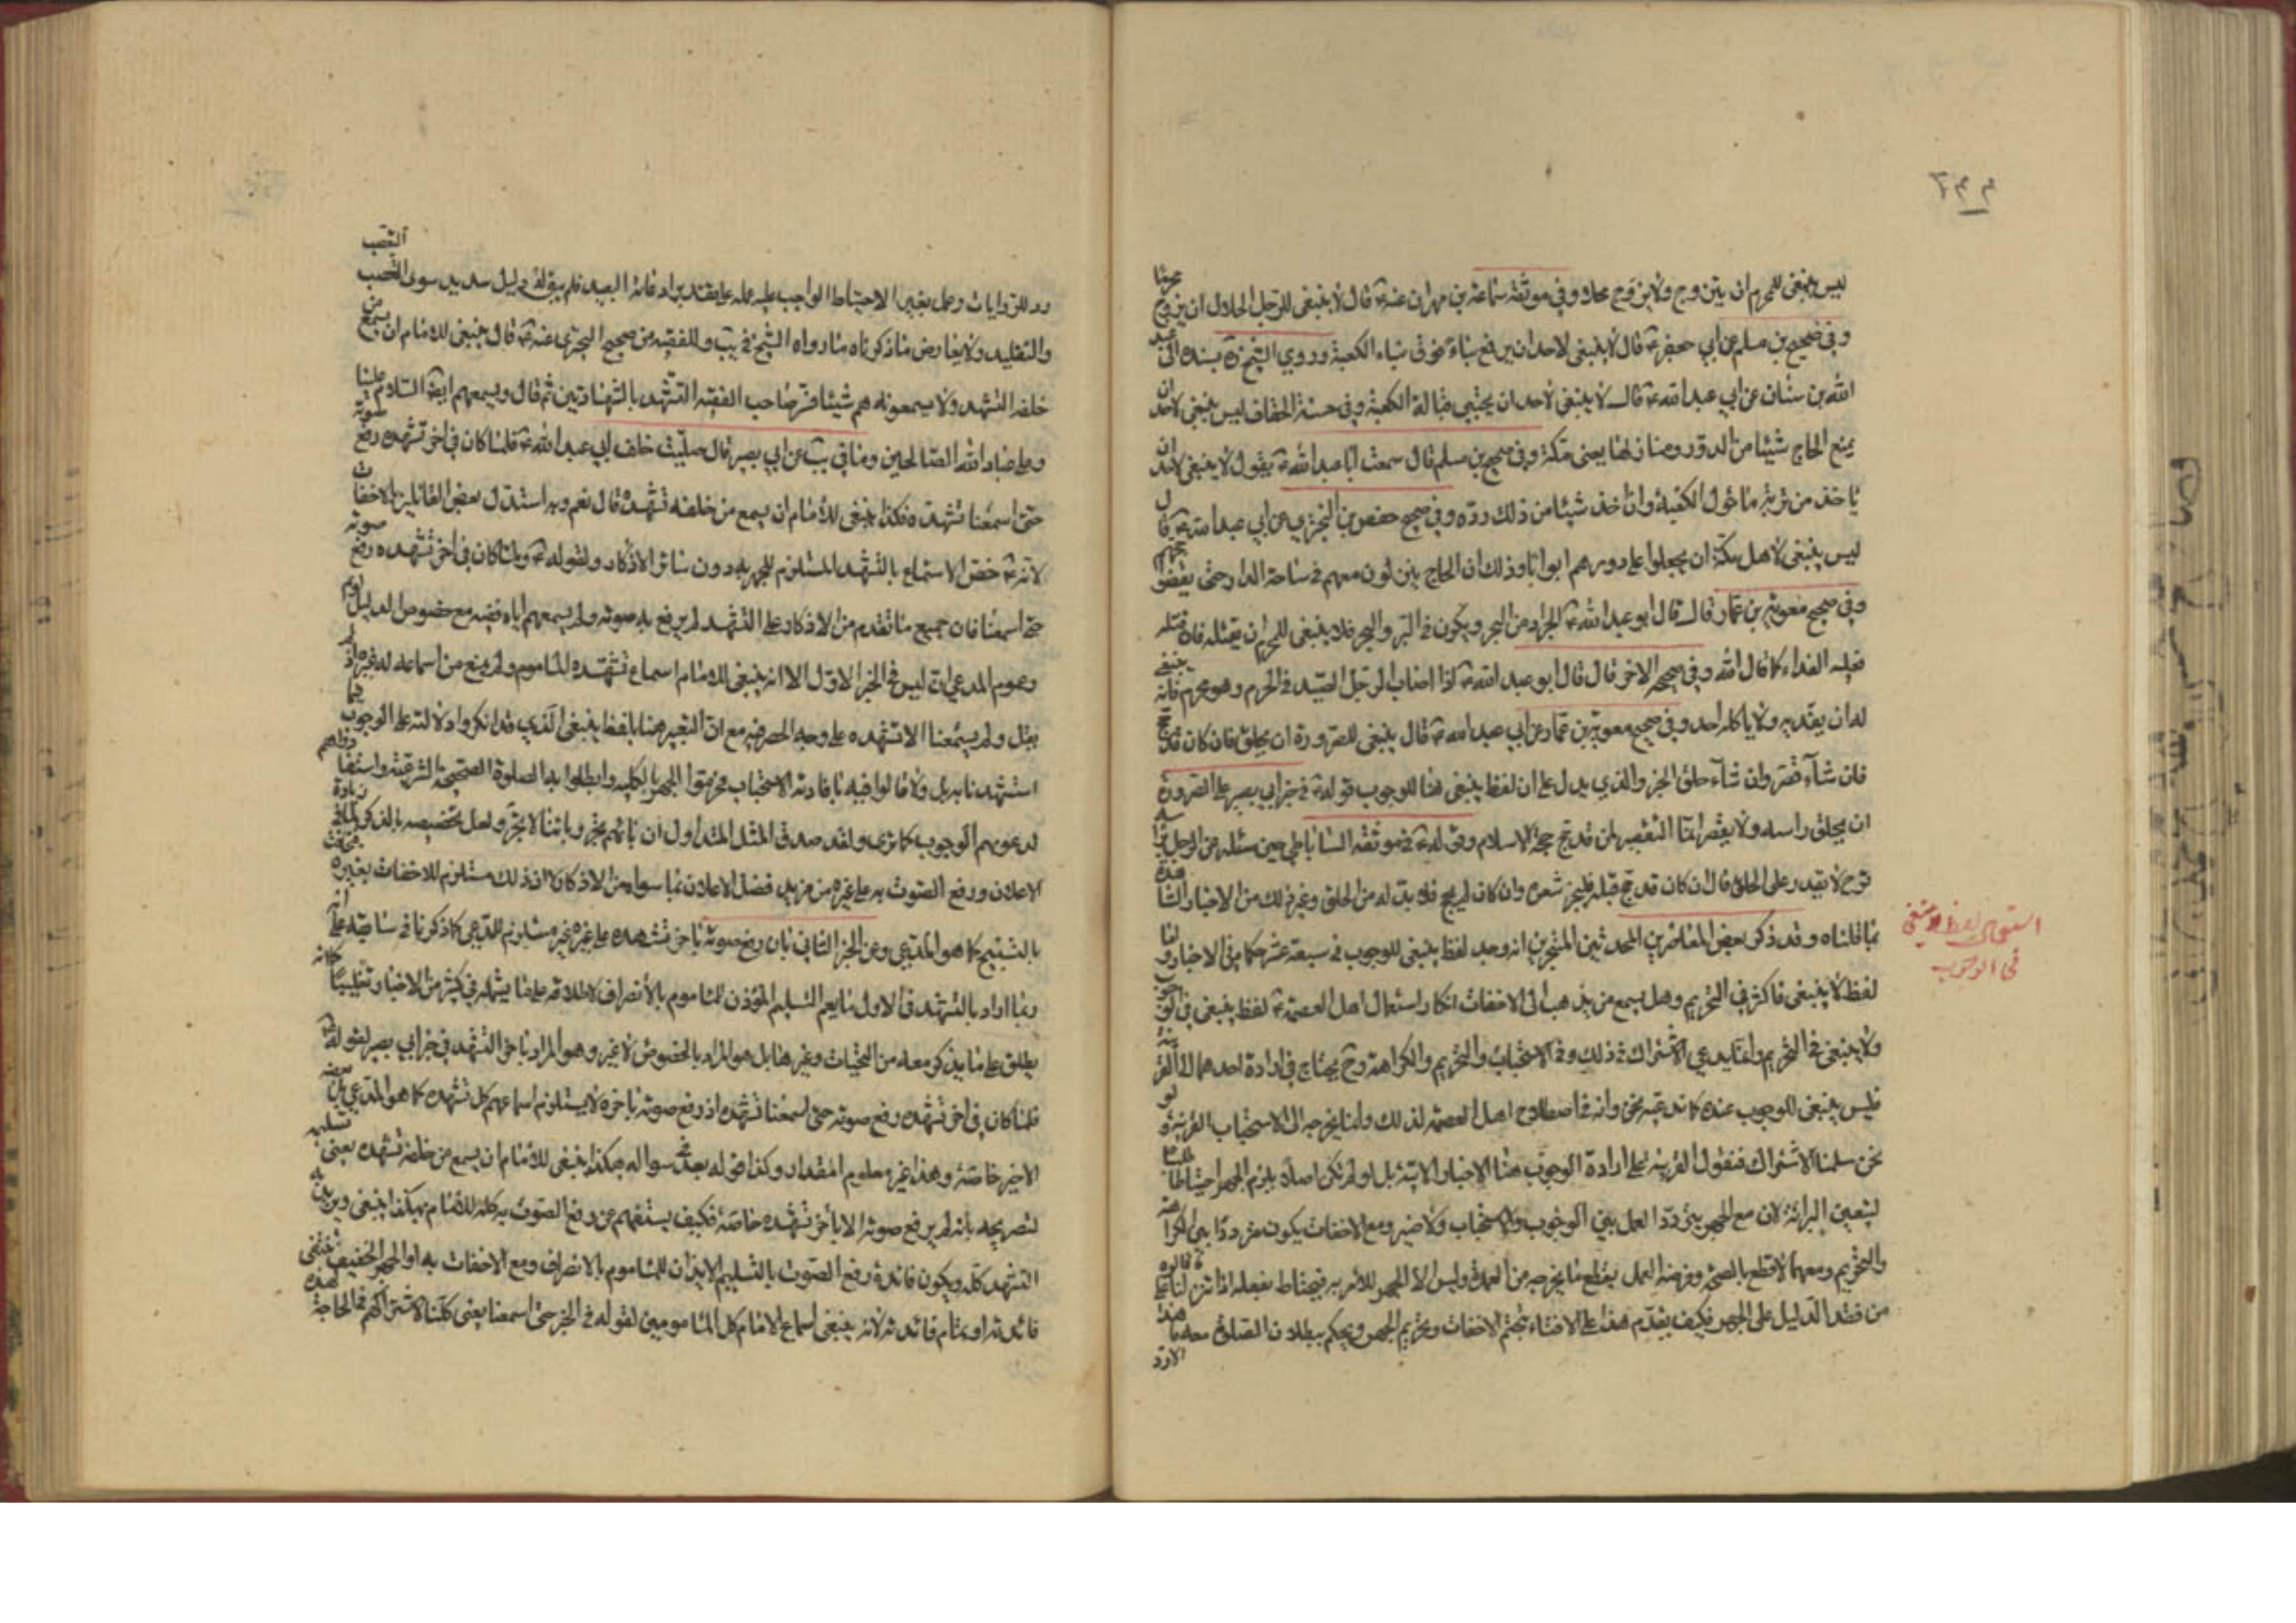 ليس ينبغي للمحرم ان يتزوج ولا يزوج محلا وفي موثقة سماعة بن مهران عنه ع قال لا ينبغي للرجل الحلال ان يزوج محرما
وفي صحيح بن مسلم عن ابي جعفر ع قال لا ينبغي لاحد ان يرفع بناء فوق بناء الكعبة وروي الشيخ بسنده الى عبد
الله بن سنان عن ابي عبد الله ع قال لا ينبغي لاحد ان يحتبي قبالة الكعبة وفي حسنة الخفاف ليس ينبغي لاحد ان
يمنع الحاج شيئا من الدور ومنازلها يعني مكة وفي صحيح بن مسلم قال سمعت ابا عبد الله ع يقول لا ينبغي لاحد ان
ياخذ من تربة ما حول الكعبة وان اخذ شيئا من ذلك رده وفي صحيح حفص بن البختري عن ابي عبد الله ع قال
ليس ينبغي لاهل مكة ان يجعلوا على دورهم ابوابا وذلك ان الحاج ينزلون معهم في ساحة الدار حتى يقضوا حجهم
وفي صحيح معوية بن عمار قال قال ابو عبد الله ع الجراد من البحر ويكون في البر والبحر فلا ينبغي للمحرم ان يقتله فان قتله
فعليه الفداء كما قال الله وفي صحيحه الاخر قال قال ابو عبد الله ع اذا اصاب الرجل الصيد في الحرم وهو محرم فانه ينبغي
له ان يفديه ولا ياكله احد وفي صحيح معوية بن عمار عن ابي عبد الله ع قال ينبغي للصرورة ان يحلق فان كان قد حج
فان شاء قصر وان شاء حلق الخبر والذي يدل على ان لفظ ينبغي هنا للوجوب قوله ع في خبر ابي بصير على الصرورة
ان يحلق راسه ولا يقصر انما التقصير لمن قد حج حجة الاسلام وقوله ع في موثقة الساباطي حين سئله عن الرجل براسه
قروح لا يقدر على الحلق قال ان كان قد حج قبله فليجز شعره وان كان لم يحج فلا بد له من الحلق وغير ذلك من الاخبار الشاهدة
بما قلناه وقد ذكر بعض المتاخرين المحدثين المتبحرين انه وجد لفظ ينبغي للوجوب في سبعة عشر حكما في الاخبار واما
لفظ لا ينبغي فاكثر في التحريم وهل يسمع من يذهب الى الاخفات انكار استعمال اهل العصمة ع لفظ ينبغي في الوجوب
ولا ينبغي في التحريم وانما يدعي الاشتراك في ذلك وفي الاستحباب والتحريم والكراهة وح يحتاج في ارادة احدهما الى القرينة
فليس ينبغي للوجوب عنده كما ندعيه نحن وانه في اصطلاح اهل العصمة لذلك وانما يخرجه الى الاستحباب القرينة ولو
نحن سلمنا الاشتراك فنقول القرينة على ارادة الوجوب هنا الاخبار والاية بل لو لم تكن اصلا يلزم الجهر احتياطا
ليتعين البرائة لان مع الجهر يتردد العمل بين الوجوب والاستحباب ولا ضير ومع الاخفات يكون مترددا بين الكراهة
والتحريم ومعهما لا قطع بالصحة وفرضه العمل بقطع ما يخرجه من العهدة وليس الا الجهر للامر به فيحتاط بفعله اذا تنزلنا عما قالوه
من فقد الدليل على الجهر فكيف يقدم هذا على الافتاء بتحتم الاخفات وتحريم الجهر ويحكم ببطلان الصلوة معه ما هذا الا رد
استعمال لفظ لا ينبغي
في الوجوب
رد للروايات وعمل بغير الاحتياط الواجب عليه عمله على فانه البعيد فلم يبق له دليل سديد سوى التعصب
والتقليد ولا يعارض ما ذكرناه ما رواه الشيخ في يب والفقيه من صحيح البختري عنه ع قال ينبغي للامام ان يسمع من
خلفه التشهد ولا يسمعونه هم شيئا فسر صاحب الفقيه التشهد بالشهادتين ثم قال ويسمعهم ايضا السلام علينا
وعلى عباد الله الصالحين وما في يب عن ابي بصير قال صليت خلف ابي عبد الله ع فلما كان في اخر تشهده رفع صوته
حتى اسمعنا تشهده فكذا ينبغي للامام ان يسمع من خلفه تشهده قال نعم وبه استدل بعض القائلين بالاخفات
لانه ع خص الاسماع بالتشهد المستلزم للجهر به دون سائر الاذكار ولقوله ع ولما كان في اخر تشهده رفع صوته
حتى اسمعنا فان جميع ما تقدم من الاذكار على التشهد لم يرفع به صوته ولم يسمعهم اياه فضيه مع خصوص الدليل
وعموم المدعى ان ليس في الخبر الاول الا انه ينبغي للامام اسماع تشهده للماموم ولم يمنع من اسماعه له غيره اذ لم
يقل ولم يسمعنا الا تشهده على وجه الحصر فيه مع ان التعبير هنا بلفظ ينبغي الذي قد انكروا دلالته على الوجوب فيما
استشهدنا به بل ولا قالوا فيه بافادته الاستحباب فحرموا الجهر بالكلية وابطلوا به الصلوة الصحيحة الشرعية واستفادهم
لدعويهم الوجوب كما ترى ولقد صدق المثل المتداول ان بائهم تجر وبائنا لا تجر ولعل تخصيصه بالذكر لما في زيادة
الاعلان ورفع الصوت به على غيره من مزيد فضل الاعلان بما سواه من الاذكار لا ان ذلك مستلزم للاخفات بغيره
بالتسبيح كما هو المدعى وعن الخبر الثاني بان رفع صوته باخر تشهده على غيره غير مستلزم للمدعى كما ذكرنا في سابقه على انه
ربما اراد بالتشهد في الاول ما يعم التسليم المؤذن للماموم بالانصراف لاطلاقه على ما يشمله في كثير من الاخبار تغليبا كما انه
يطلق على ما يذكر معه من التحيات وغيرها بل هو المراد بالخصوص لا غير وهو المراد باخر التشهد في خبر ابي بصير لقوله
فلما كان في اخر تشهده رفع صوته حتى اسمعنا تشهده اذ رفع صوته باخره لا يستلزم اسماعهم كل تشهده كما هو المدعى بل بعضه
الاخير خاصة وهذا غير معلوم المقدار وكذا قوله بعد في سواله فكذا ينبغي للامام ان يسمع من خلفه تشهده يعني تسليمه
لتصريحه بانه لم يرفع صوته الا باخر تشهده خاصة فكيف يستفهم عن رفع الصوت به كله للامام بهكذا ينبغي ويريد به
التشهد كله ويكون فائدة رفع الصوت بالتسليم الايذان للماموم بالانصراف ومع الاخفات به او الجهر الخفيف تنتفي
فائدته او تمام فائدته لانه ينبغي اسماع الامام كل المامومين لقوله في الخبر حتى اسمعنا يعني كلنا لاشتراكهم في الحاجة لهذه